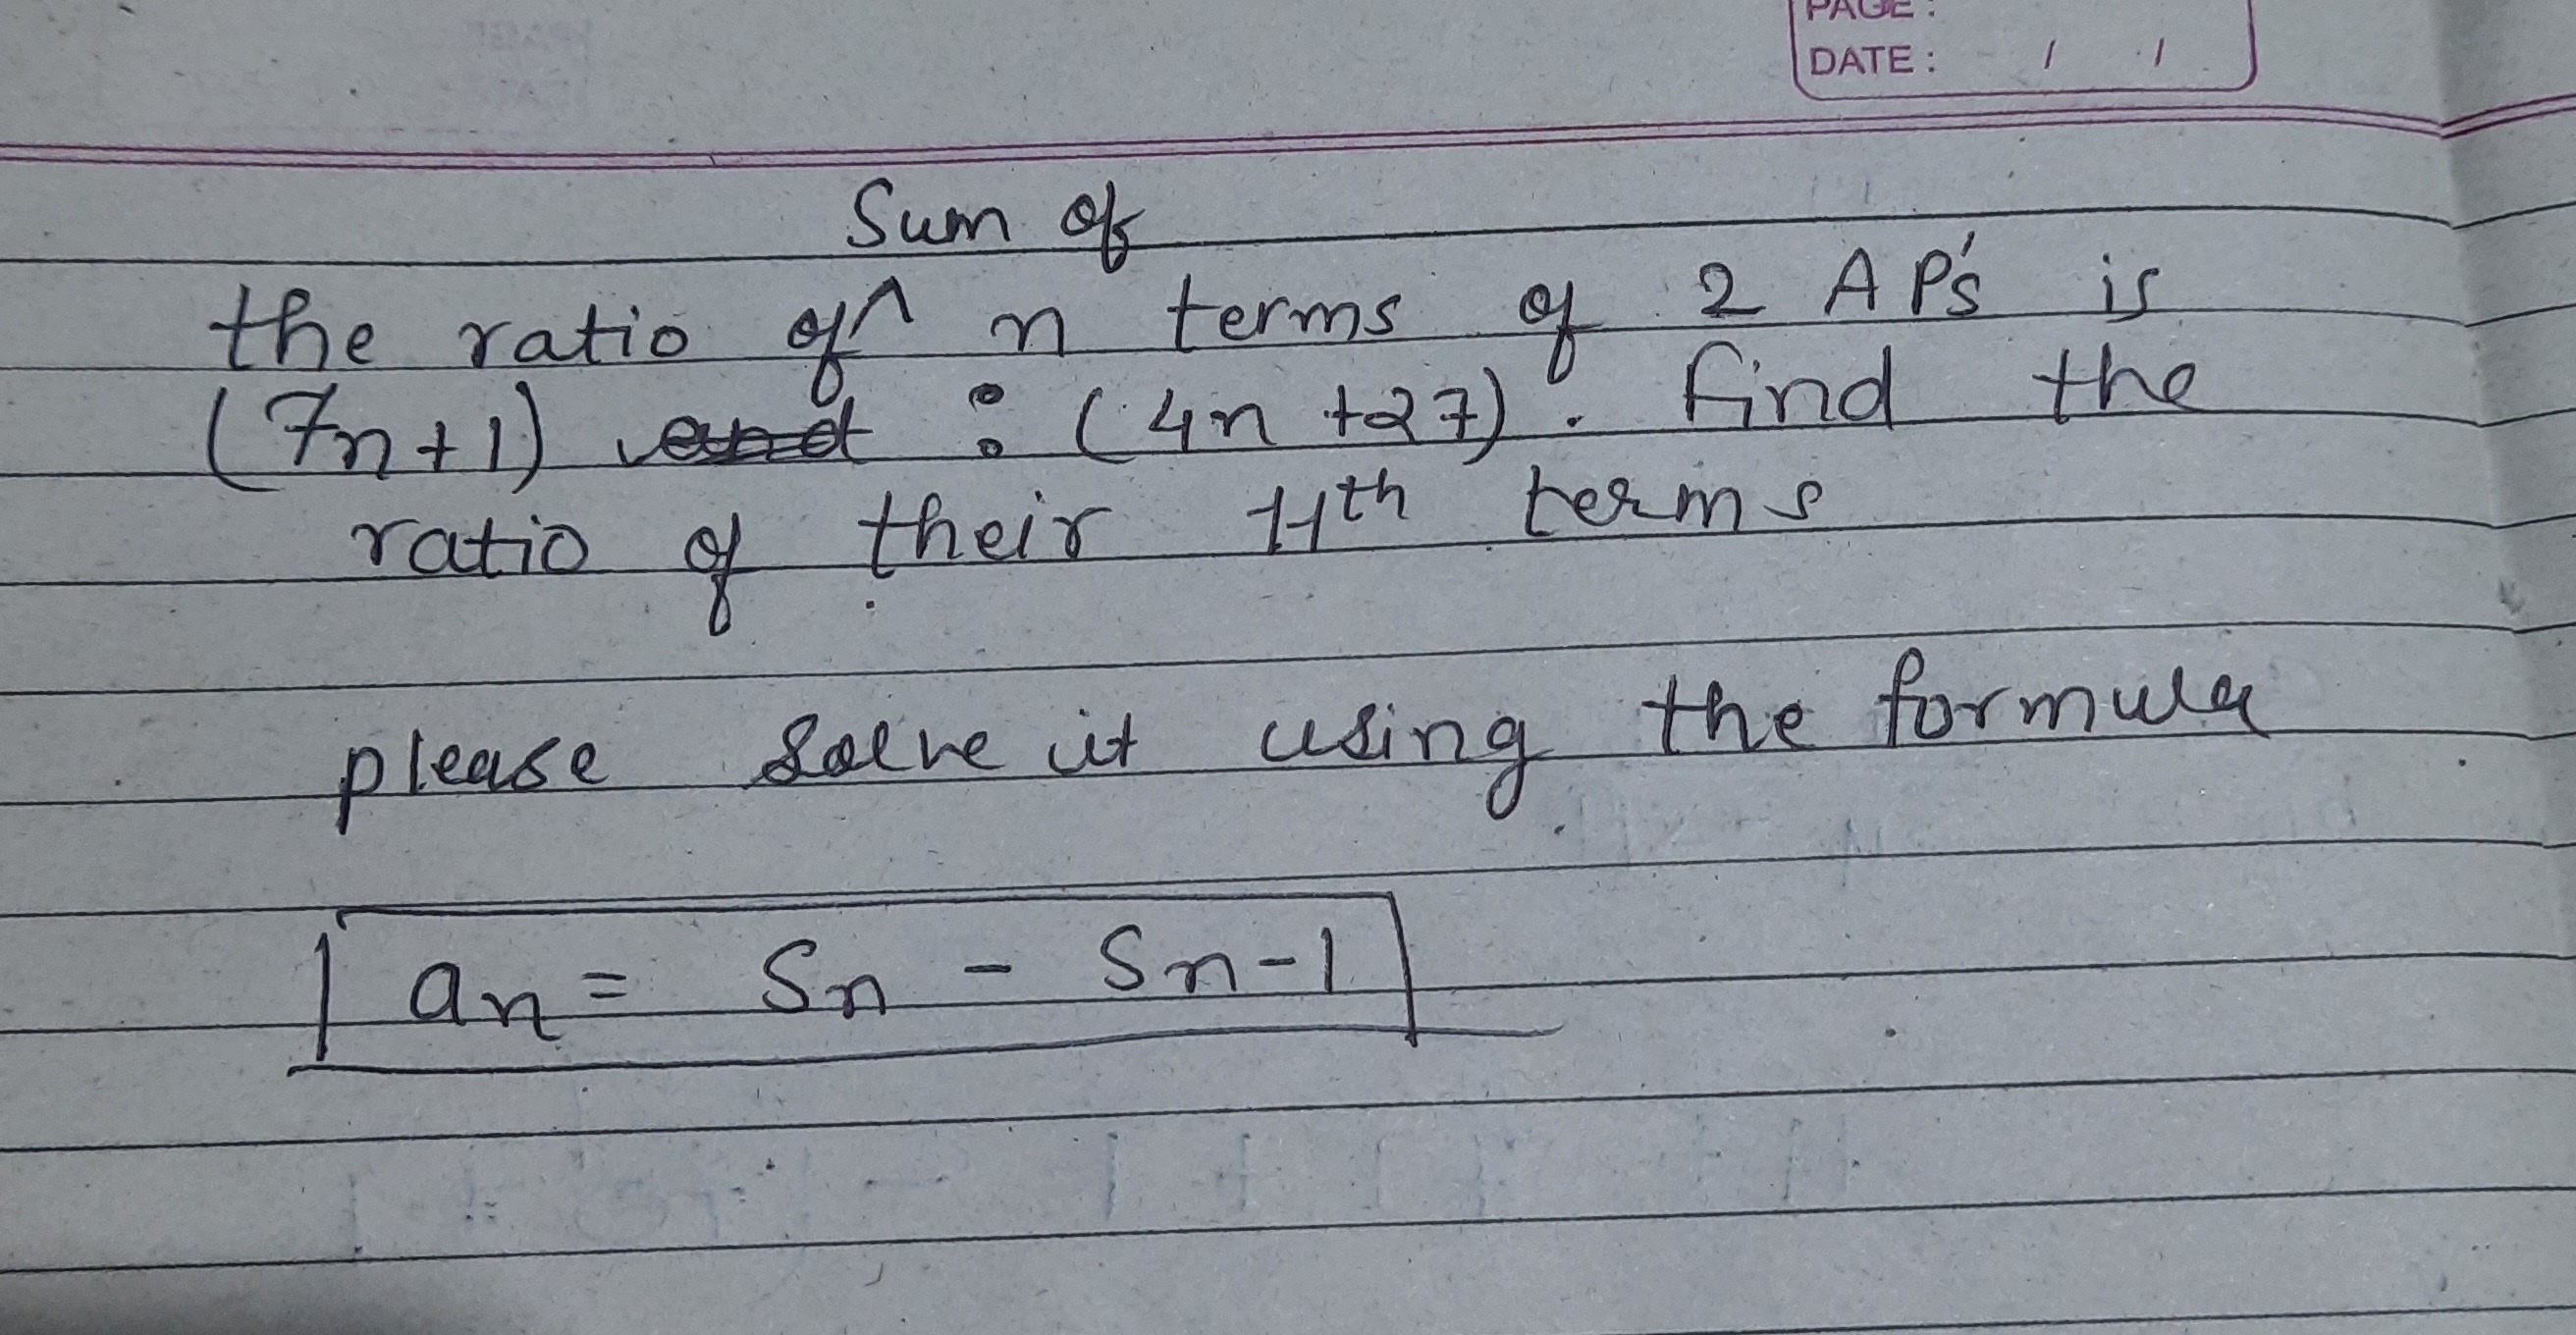 PAGE :
DATE : / /
Sum of
the ratio of ^ n terms of 2 AP's is
(7n+1) : (4n +27). find the
ratio of their 11th terms
please solve it using the formula
an = Sn - Sn-1